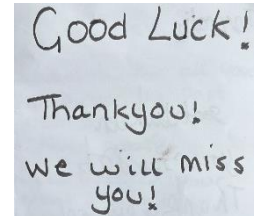 Good Luck!
Thankyou!
we will miss
you!